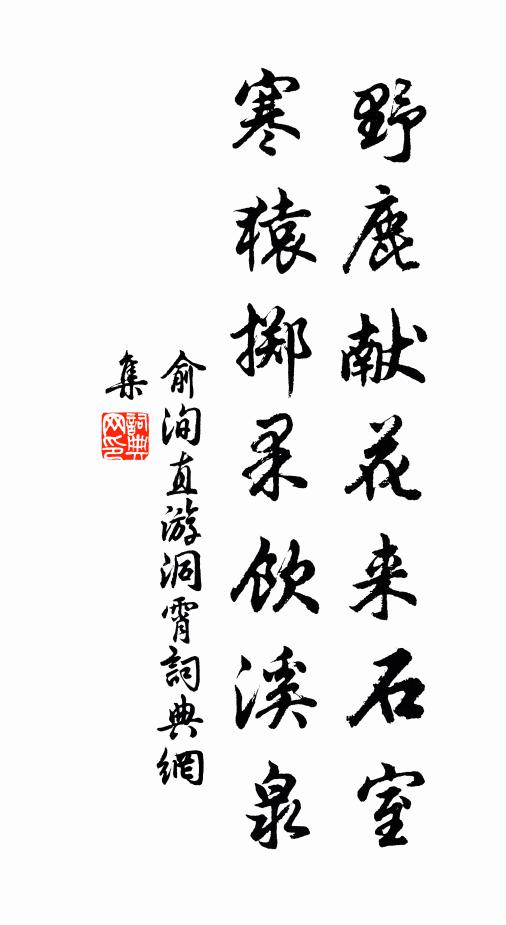 野鹿献花来石室
寒猿掷果饮溪泉
俞洵直游洞霄詞典網
集
詞典网印